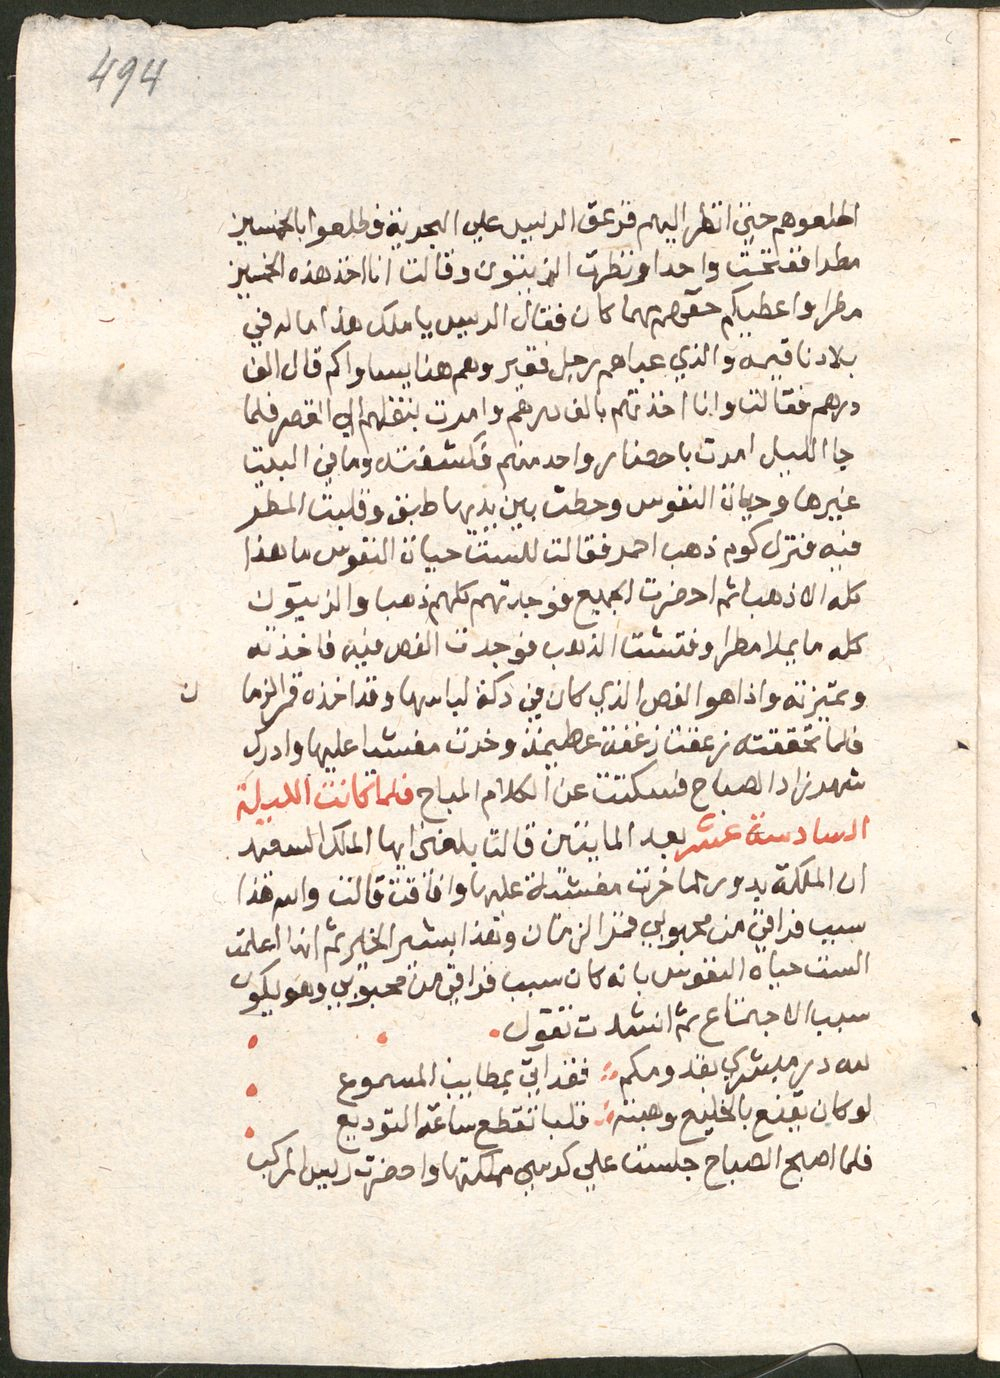 494
اطلعوهم حتي انظر اليهم فزعق الرييس علي البحرية فطلعوا بالخمسين
مطرا ففتحت واحدا ونظرت الزيتون وقالت انا اخذ هذه الخمسين
مطرا واعطيكم حقهم مهما كان فقال الرييس يا ملك هذا ماله في
بلادنا قيمه والذي عباهم رجل فقير وهم هنا يساواكم قال الف
درهم فقالت وانا اخذتهم بالف درهم وامرت بنقلهم الي القصر فلما
جا الليل امرت باحضار واحد منهم فكشفته وما في البيت
غيرها وحياة النفوس وحطت بين يديها طبق وقلبت المطر
فيه فنزل كوم ذهب احمر فقالت للست حياة النفوس ما هذا
كله الا ذهب ثم احضرت الجميع فوجدتهم كلهم ذهبا والزيتون
كله ما يملا مطرا وفتشت الذهب فوجدت الفص فيه فاخذته
وتميزته واذا هو الفص الذي كان في دكة لباسها وقد اخذه قمر الزما
ن
فلما تحققته زعقت زعقة عظيمة وخرت مغشيا عليها وادرك
شهرزاد الصباح فسكتت عن الكلام المباح فلما كانت الليلة
السادسة عشر بعد المايتين قالت بلغني ايها الملك السعيد
ان الملكة بدور لما خرت مغشية عليها وافاقت قالت والله هذا
سبب فراقي من محبوبي قمر الزمان وهذا بشير الخير ثم انها اعلمت
الست حياة النفوس بانه كان سبب فراقي من محبوبي وهو يكون
سبب الاجتماع ثم انشدت تقول
لله در مبشري بقدومكم فقد اتي بمطايب المسموع
لو كان يقنع بالخليع وهبته قلبا تقطع ساعة التوديع
فلما اصبح الصباح جلست علي كرسي مملكتها واحضرت رييس المركب